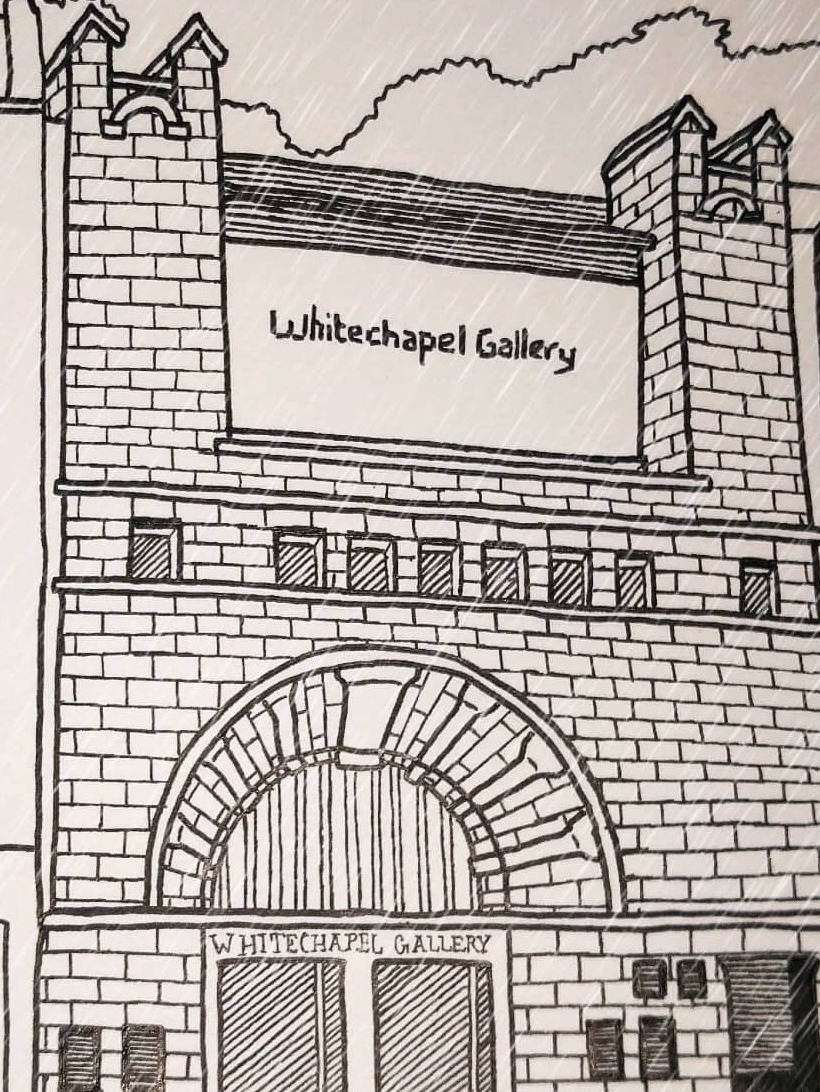 Whitechapel Gallery
WHITECHAPEL GALLERY